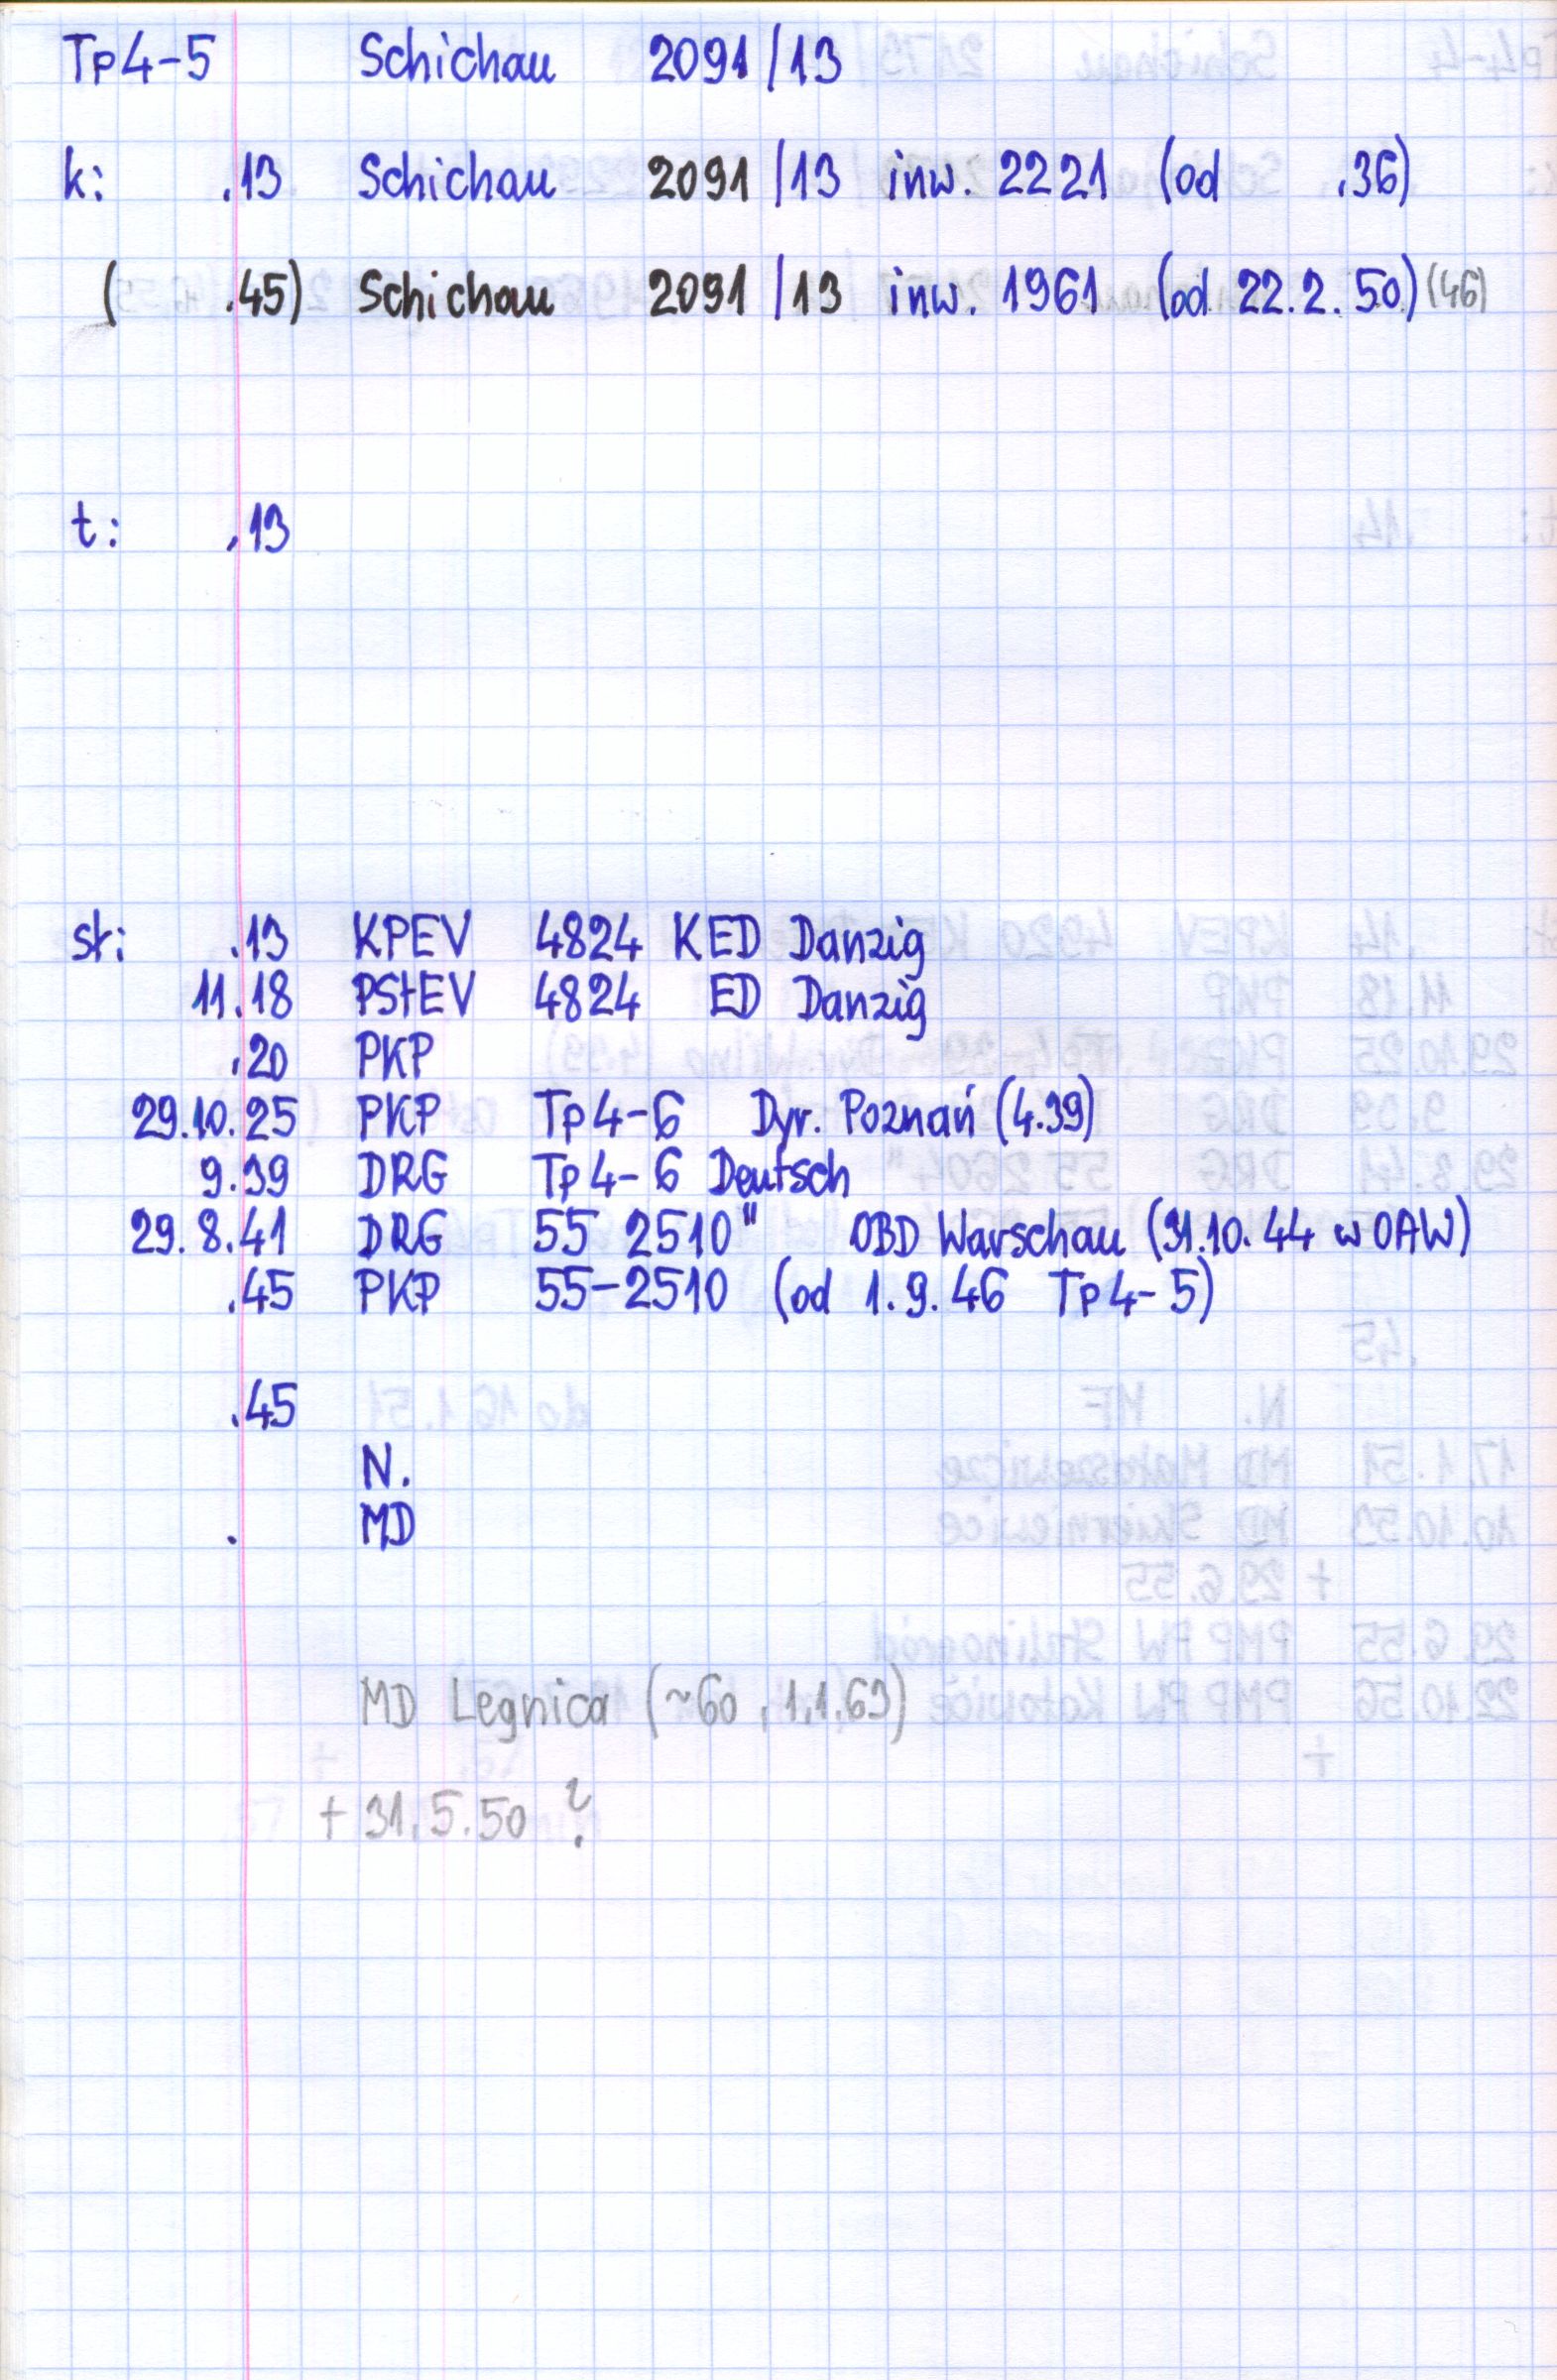 Tp4-5 Schichau 2091/13
k: .13 Schichau 2091/13 inw. 2221 (od .36)
( .45) Schichau 2091/13 inw. 1961 (od 22.2.50) (46)
t: .13
st: .13 KPEV 4824 KED Danzig
11.18 PStEV 4824 ED Danzig
.20 PKP
29.10.25 PKP Tp4-6 Dyr. Poznań (4.39)
9.39 DRG Tp4-6 Deutsch
29.8.41 DRG 55 2510" OBD Warschau (31.10.44 w OAW)
.45 PKP 55-2510 (od 1.9.46 Tp4-5)
.45
N.
. MD
MD Legnica (~60, 1.1.63)
+ 31.5.50 ?